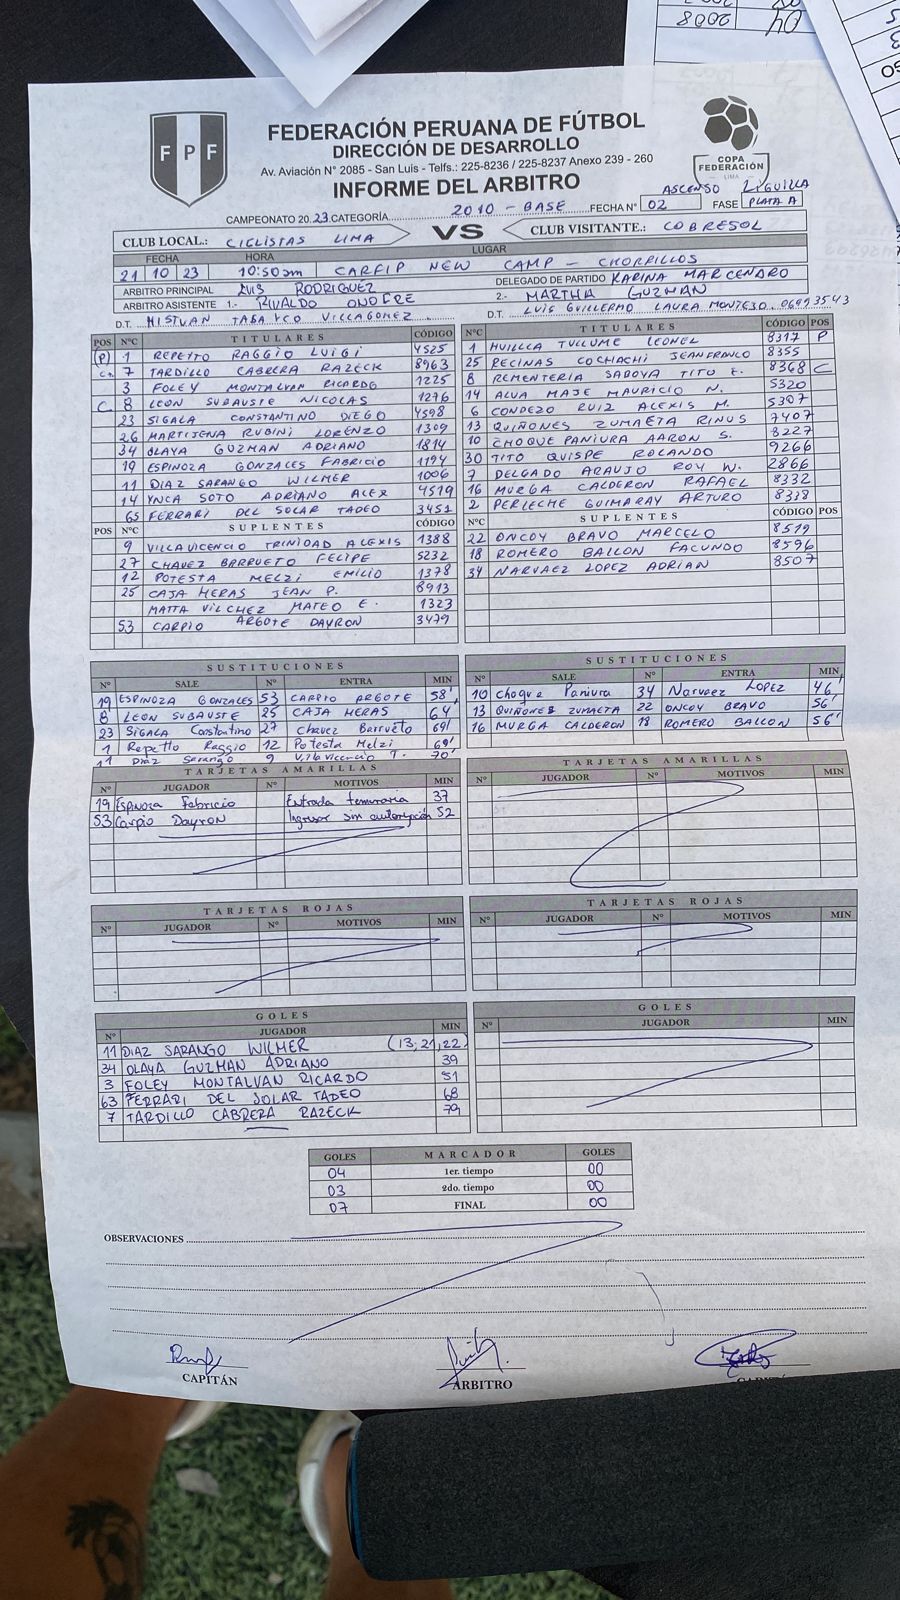 2008 04
FPF
FEDERACIÓN PERUANA DE FÚTBOL
DIRECCIÓN DE DESARROLLO
Av. Aviación N° 2085 - San Luis - Telfs.: 225-8236 / 225-8237 Anexo 239 - 260
INFORME DEL ARBITRO
COPA FEDERACIÓN LIMA
ASCENSO LIGUILLA
CAMPEONATO 20.23.CATEGORÍA 2010 - BASE FECHA N° 02 FASE PLATA A
CLUB LOCAL.: CICLISTAS LIMA VS CLUB VISITANTE.: COBRESOL
FECHA HORA LUGAR
21 10 23 10:50am CARFIP NEW CAMP - CHORRILLOS
ARBITRO PRINCIPAL LUIS RODRIGUEZ DELEGADO DE PARTIDO KARINA MARCENARO
ARBITRO ASISTENTE 1.- RIVALDO ONOFRE 2.- MARTHA GUZMAN
D.T. HISTVAN TABAYCO VILLAGOMEZ D.T. LUIS GUILLERMO LAURA MONTEJO. 06993543
POS N°C TITULARES CÓDIGO
(P) 1 REPETTO RAGGIO LUIGI 4525
7 TARDILLO CABRERA RAZECK 8963
3 FOLEY MONTALVAN RICARDO 1225
C 8 LEON SUBAUSTE NICOLAS 1276
23 SIGALA CONSTANTINO DIEGO 4598
26 MARTIJENA RUBINI LORENZO 1309
34 OLAYA GUZMAN ADRIANO 1814
19 ESPINOZA GONZALES FABRICIO 1194
11 DIAZ SARANGO WILMER 1006
14 YNCA SOTO ADRIANO ALEX 4519
65 FERRARI DEL SOLAR TADEO 3451
POS N°C SUPLENTES CÓDIGO
9 VILLAVICENCIO TRINIDAD ALEXIS 1388
27 CHAVEZ BARRUETO FELIPE 5232
12 POTESTA MELZI EMILIO 1378
25 CAJA HERAS JEAN P. 8913
MATTA VILCHEZ MATEO E. 1323
53 CARPIO ARGOTE DAYRON 3479
N°C TITULARES CÓDIGO POS
1 HUILLCA TULLUME LEONEL 8317 P
25 RECINAS COCHACHI JEANFRANCO 8355
8 REMENTERIA SABOYA TITO E. 8368 C
14 ALVA MAJE MAURICIO N. 5320
6 CONDEZO RUIZ ALEXIS M. 5307
13 QUIÑONES ZUMAETA RINUS 7407
10 CHOQUE PANIURA AARON S. 8227
30 TITO QUISPE ROLANDO 9266
7 DELGADO ARAUJO ROY W. 2866
16 MURGA CALDERON RAFAEL 8332
2 PERLECHE GUIMARAY ARTURO 8318
N°C SUPLENTES CÓDIGO POS
22 ONCOY BRAVO MARCELO 8519
18 ROMERO BALLON FACUNDO 8596
34 NARVAEZ LOPEZ ADRIAN 8507
SUSTITUCIONES
N° SALE N° ENTRA MIN
19 ESPINOZA GONZALES 53 CARPIO ARGOTE 58'
8 LEON SUBAUSTE 25 CAJA HERAS 64'
23 SIGALA Constantino 27 Chavez Barrueto 69'
1 Repetto Raggio 12 Potesta Melzi 69'
11 Diaz Sarango 9 Villavicencio T. 70'
SUSTITUCIONES
N° SALE N° ENTRA MIN
10 Choque Paniura 34 Narvaez LOPEZ 46'
13 QUIÑONES ZUMAETA 22 ONCOY BRAVO 56'
16 MURGA CALDERON 18 ROMERO BALLON 56'
TARJETAS AMARILLAS
N° JUGADOR N° MOTIVOS MIN
19 ESPINOZA Fabricio Entrada temeraria 37
53 Carpio DayRON Ingresar sin autorización 52
TARJETAS AMARILLAS
N° JUGADOR N° MOTIVOS MIN
TARJETAS ROJAS
N° JUGADOR N° MOTIVOS MIN
TARJETAS ROJAS
N° JUGADOR N° MOTIVOS MIN
GOLES
N° JUGADOR MIN
11 DIAZ SARANGO WILMER (13,21,22)
34 OLAYA GUZMAN ADRIANO 39
3 FOLEY MONTALVAN RICARDO 51
63 FERRARI DEL SOLAR TADEO 68
7 TARDILLO CABRERA RAZECK 79
GOLES
N° JUGADOR MIN
GOLES MARCADOR GOLES
04 1er. tiempo 00
03 2do. tiempo 00
07 FINAL 00
OBSERVACIONES
CAPITÁN ARBITRO